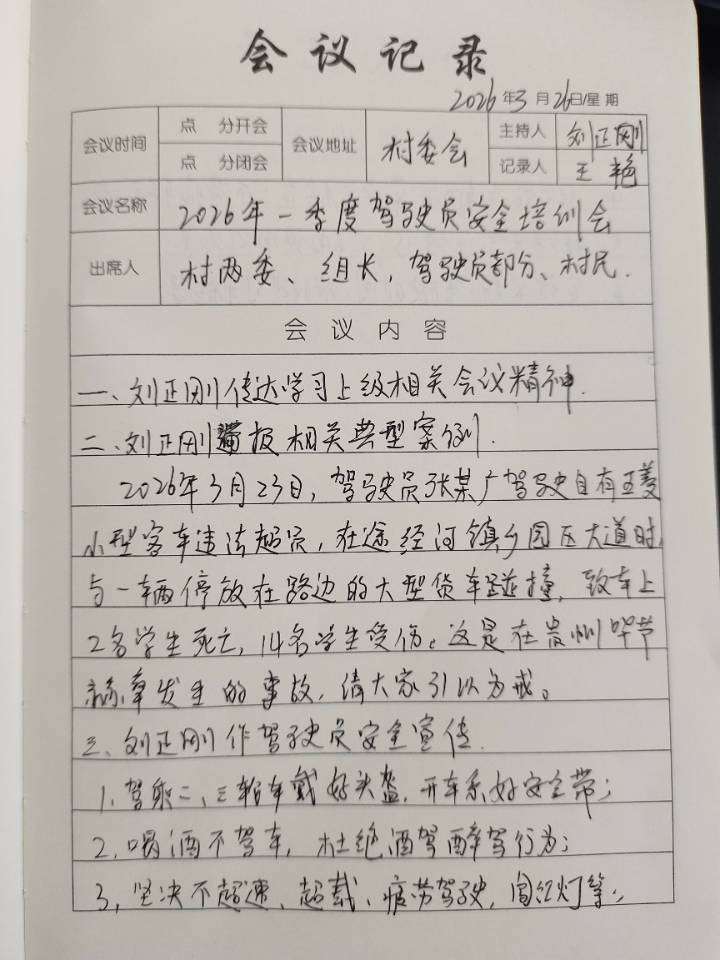 会议记录
2026年3月26日/星期
会议时间 点 分开会 会议地址 村委会 主持人 刘正刚
点 分闭会 记录人 王艳
会议名称 2026年一季度驾驶员安全培训会
出席人 村两委、组长,驾驶员部分、村民.
会议内容
一、刘正刚传达学习上级相关会议精神.
二、刘正刚通报相关典型案例.
2026年3月23日,驾驶员张某广驾驶自有五菱
小型客车违法超员,在途经河镇乡园区大道时,
与一辆停放在路边的大型货车碰撞,致车上
2名学生死亡,14名学生受伤。这是在贵州毕节
发生的事故,请大家引以为戒。
三、刘正刚作驾驶员安全宣传.
1、驾乘二、三轮车戴好头盔,开车系好安全带;
2、喝酒不驾车,杜绝酒驾醉驾行为;
3、坚决不超速、超载、疲劳驾驶,闯红灯等;